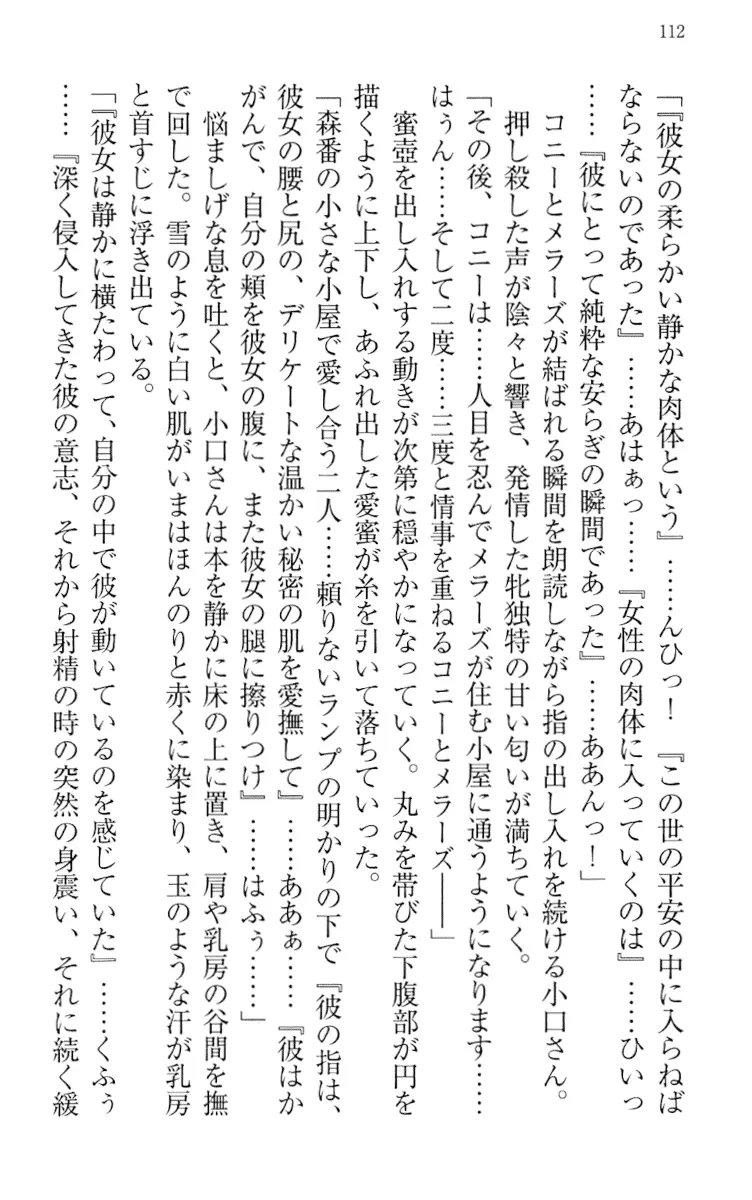 112
「『彼女の柔らかい静かな肉体という』……んひっ！　『この世の平安の中に入らねば
ならないのであった』……あはぁっ……『女性の肉体に入っていくのは』……ひいっ
……『彼にとって純粋な安らぎの瞬間であった』……ああんっ！」
　コニーとメラーズが結ばれる瞬間を朗読しながら指の出し入れを続ける小口さん。
　押し殺した声が陰々と響き、発情した牝独特の甘い匂いが満ちていく。
「その後、コニーは……人目を忍んでメラーズが住む小屋に通うようになります……
はぅん……そして二度……三度と情事を重ねるコニーとメラーズ――」
　蜜壺を出し入れする動きが次第に穏やかになっていく。丸みを帯びた下腹部が円を
描くように上下し、あふれ出した愛蜜が糸を引いて落ちていった。
「森番の小さな小屋で愛し合う二人……頼りないランプの明かりの下で『彼の指は、
彼女の腰と尻の、デリケートな温かい秘密の肌を愛撫して』……ああぁ……『彼はか
がんで、自分の頬を彼女の腹に、また彼女の腿に擦りつけ』……はふぅ……」
　悩ましげな息を吐くと、小口さんは本を静かに床の上に置き、肩や乳房の谷間を撫
で回した。雪のように白い肌がいまはほんのりと赤くに染まり、玉のような汗が乳房
と首すじに浮き出ている。
「『彼女は静かに横たわって、自分の中で彼が動いているのを感じていた』……くふぅ
……『深く侵入してきた彼の意志、それから射精の時の突然の身震い、それに続く緩